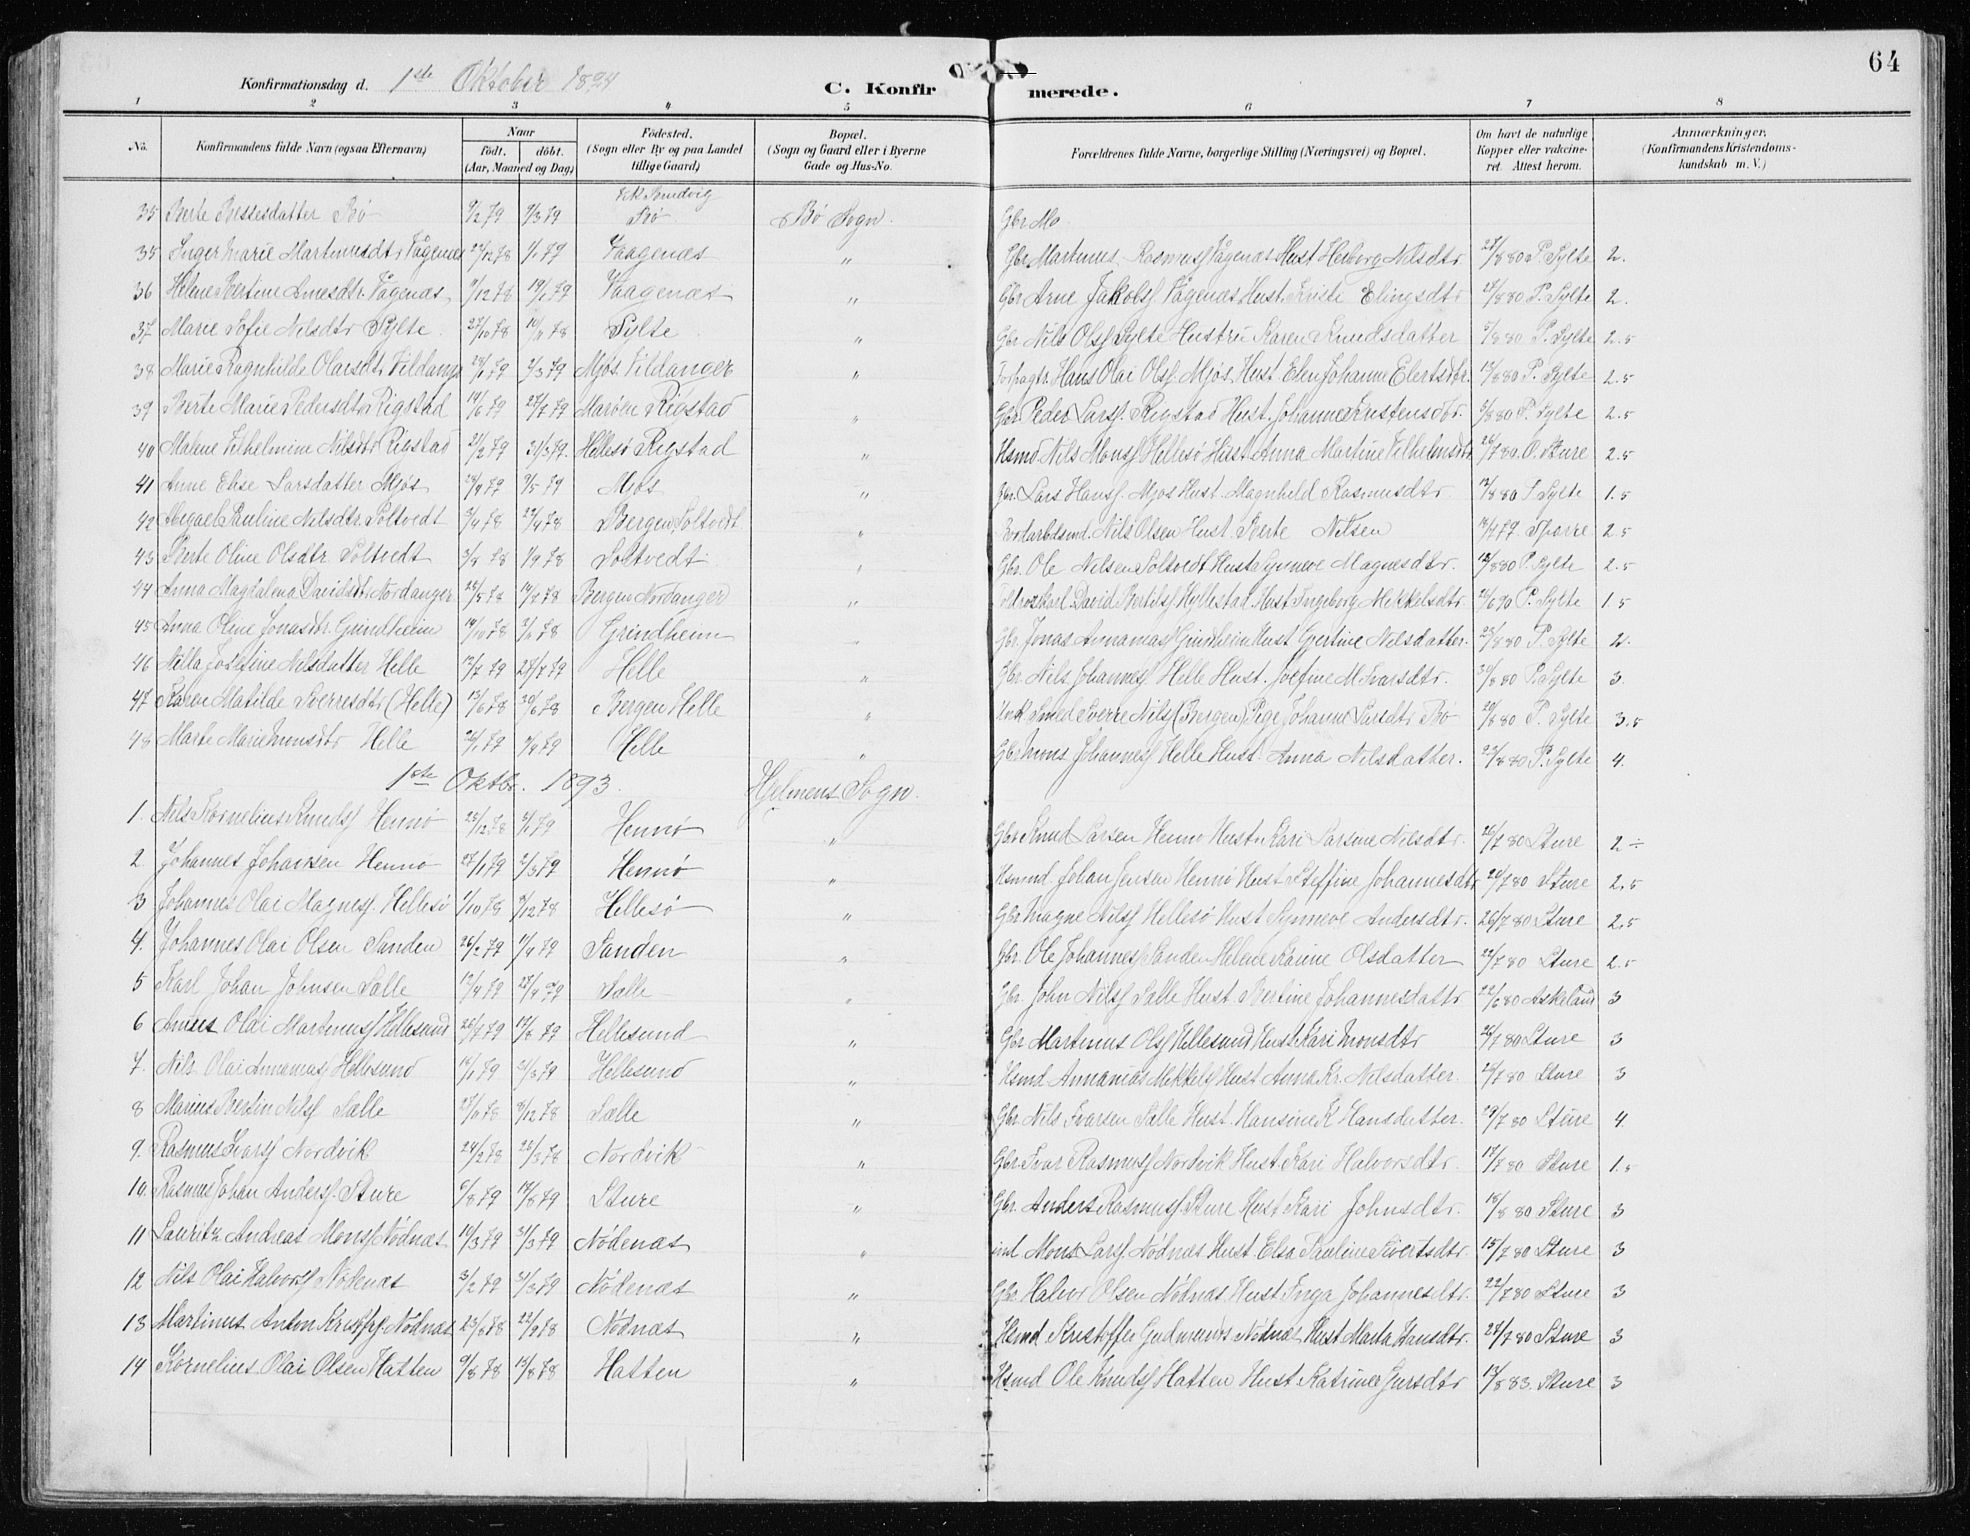 64
Konfirmationsdag d. 1ste Oktober 1894 C. Konfirmerede.
1 2 3 4 5 6 7 8
No. Konfirmandens fulde Navn (ogsaa Efternavn) Naar født. døbt. (Aar, Maaned og Dag) Fødested. (Sogn eller By og paa Landet tillige Gaard) Bopæl. (Sogn og Gaard eller i Byerne Gade og Hus-No. Forældrenes fulde Navne, borgerlige Stilling (Næringsvei) og Bopæl. Om havt de naturlige Kopper eller vakcineret. Attest herom. Anmærkninger. (Konfirmandens Kristendomskundskab m. V.)
35 Berte Bessesdatter Bø 9/2 79 9/3 79 Bø Bø Sogn. Gbr Mo
35 Inger Marie Martinusdtr Vågenes 1/1 79 Vaagenæs " Gbr Martinus Rasmus Vågenæs Hust Herborg Nilsdtr 27/8 80 P. Sylte 2.
36 Helene Bertine Arnesdtr Vågenæs 9/12 78 19/1 79 Vaagenæs " Gbr Arne Jakobs Vågenæs Hust. Kristi Elingsdtr 27/8 80 P. Sylte 2.
37 Marie Sofie Nilsdtr Sylte 27/10 78 10/11 78 Sylte " Gbr Nils Ols Sylte Hustru Karen Knudsdatter 8 80 P. Sylte 2.5
38 Marie Ragnhilde Olaisdtr Vildanger 2/3 79 Mjøs Vildanger " Forpagtr. Hans Olai Ols. Mjøs Hust Elen Johanne Elertsdtr. 8 80 P. Sylte 2.5
39 Berte Marie Pedersdtr Rigstad 19/6 79 27/7 79 Marøen Rigstad " Gbr Peder Lars Rigstad Hust. Johanne Kristensdtr. 8 80 P. Sylte 2.5
40 Malene Vilhelmine Nilsdtr Rigstad 21/2 79 31/3 79 Hellesø Rigstad " Hsmd Nils Mons Hellesø Hust Anna Martine Vilhelmsdtr 26/7 80. O. Sture 2.5
41 Anne Elise Larsdatter Mjøs 5 79 Mjøs " Gbr. Lars Hans Mjøs Hust. Magnhild Rasmusdtr 8 80 P. Sylte 1.5
42 Abegael Pauline Nilsdtr. Soltvedt 27/4 78 Bergen Soltvedt " Nils Olsen Hust Berte Nilsen 4 79. Sporre 2.5
43 Berte Oline Olsdtr Soltvedt 3/8 78 1/9 78 Soltvedt " Gbr. Ole Nilsen Soltvedt Hust Synneve Magnesdtr. 13/8 80 P. Sylte 2.5
44 Anna Magdalena Davidsdtr Nordanger 5 78 14/7 78 Bergen Nordanger " David Bertils Hyllestad Hust Ingeborg Mikkelsdtr 6 90 P. Sylte 1.5
45 Anna Oline Jonasdtr. Grindheim 14/10 78 Grindheim " Gbr Jonas Annanias Grindheim Hust Gjertine Nilsdatter. 8 80 P. Sylte 2.
46 Nilla Josefine Nilsdatter Helle 13/7 79 27/7 79 Helle " Gbr Nils Johannes Helle Hust. Josefine M Ivarsdtr. 8 80 P. Sylte 3.
47 Karen Matilde Sverresdtr (Helle) 13/6 78 30/6 78 Bergen Helle " Smed Sverre Nils (Bergen) Pige Johanne Larsdtr Bø 8 80 P. Sylte 3.5
48 Marte Marie Monsdtr Helle 26/1 79 Helle " Gbr Mons Johannes Helle Hust. Anna Nilsdatter. 8 80 P. Sylte 4.
1ste Oktbr. 1893. Hjelmens Sogn.
1. Nils Kornelius Knuds Hennø 23/12 78 1 79 Hennø " Gbr Knud Larsen Hennø Hust. Kari Larsine Nilsdtr. 26/7 80 Sture 2 ÷
2 Johannes Johansen Hennø 27/1 79 2/3 79 Hennø " Hsmnd Johan Jensen Hennø Hust Steffine Johannesdtr 7 80 Sture 2.5
3 Johannes Olai Magnes. Hellesø 10 78 12 78 Hellesø " Gbr Magne Nils Hellesø Hust Synneve Andersdtr. 26/7 80 Sture 2.5
4. Johannes Olai Olsen Sanden 26/2 79 4 79 Sanden " Gbr. Ole Johannes Sanden Helene Karine Olsdatter 22/7 80 Sture 2.5
5 Karl Johan Johnsen Sælle 13/4 79 27/4 79 Sælle " Gbr. John Nils Sælle Hust. Bertine Johannesdattr 22/6 80 Askeland 3
6 Olai Martinus Hellesund 26/7 79 17/8 79 Hellesund " Gbr Martinus Ols Hellesund Hust Kari Monsdtr 26/7 80 Sture 3
7. Nils Olai Annanias Hellesund 1 79 3 79 Hellesund " Hsmd Annanias Mikkels Hust Anna Kr. Nilsdatter. 7 80 Sture 3
8 Marius Bertin Nils Sælle 27/11 78 12 78 Sælle " Gbr Nils Ivarsen Sælle Hust. Hansine K Hansdatter. 7 80 Sture 4.
9. Rasmus Ivars Nordvik 24/2 78 3 78 Nordvik " Gbr Ivar Rasmus Nordvik Hust. Kari Halvorsdtr. 17/7 80 Sture 1.5
10. Rasmus Johan Anders. Sture 8 79 17/8 79 Sture " Gbr. Anders Rasmus Sture Hust Kari Johnsdtr. 8 80 Sture 3
11 Lauritz Andreas Mons Nødnæs 10/3 79 31/3 79 Nødenæs " ind Mons Lars Nødnæs Hust Elsa Pauline Sivertsdtr 15/7 80 Sture 3
12 Nils Olai Halvors Nødenæs 3/2 79 31/3 79 Nødenæs " Gbr Halvor Olsen Nødnæs Hust Inga Johannesdtr. 22/7 80 Sture 3
13 Martinus Anton Nødnæs 23/8 78 22/9 78 Nødnæs " Hsmd Kristoffer Gudmunds Nødnæs Hust Marta Hansdtr. 27/7 80 Sture 3
14 Kornelius Olai Olsen Hatten 9/8 78 18/8 78 Hatten " Hsmd Ole Knuds Hatten Hust. Katrine 8 83. Sture 3